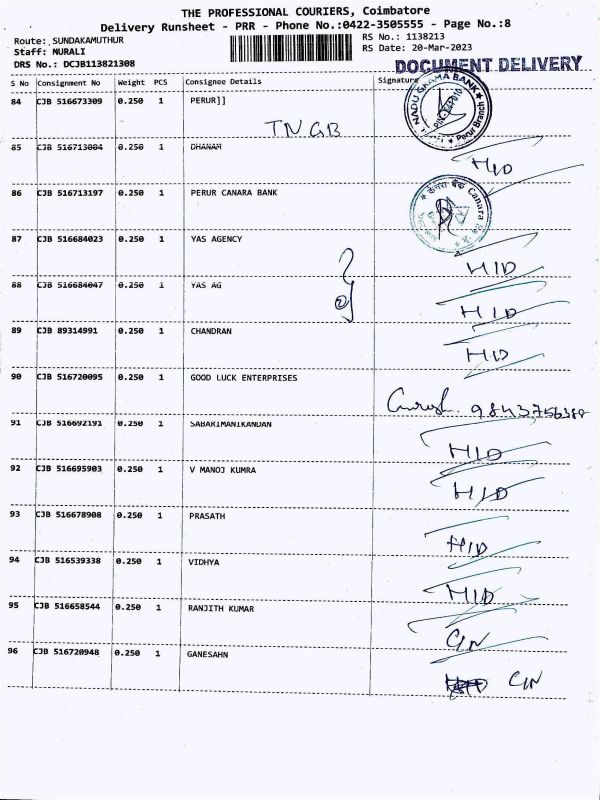 THE PROFESSIONAL COURIERS, Coimbatore
Delivery Runsheet - PRR - Phone No.:0422-3505555 - Page No.:8
Route: SUNDAKAMUTHUR
RS No.: 1138213
Staff: MURALI
RS Date: 20-Mar-2023
DRS No.: DCJB113821308
DOCUMENT DELIVERY
S No Consignment No Weight PCS Consignee Details Signature
84 CJB 516673309 0.250 1 PERUR]]
NADU GRAMA BANK Perur Branch
TNGB
85 CJB 516713004 0.250 1 DHANAM
HID
86 CJB 516713197 0.250 1 PERUR CANARA BANK
केनरा बैंक Canara
87 CJB 516684023 0.250 1 YAS AGENCY
HID
88 CJB 516684047 0.250 1 YAS AG
HID
89 CJB 89314991 0.250 1 CHANDRAN
HID
90 CJB 516720095 0.250 1 GOOD LUCK ENTERPRISES
91 CJB 516692191 0.250 1 SABARIMANIKANDAN
HID
92 CJB 516695903 0.250 1 V MANOJ KUMRA
HID
93 CJB 516678908 0.250 1 PRASATH
HID
94 CJB 516539338 0.250 1 VIDHYA
HID
95 CJB 516658544 0.250 1 RANJITH KUMAR
CIN
96 CJB 516720948 0.250 1 GANESAHN
CIN